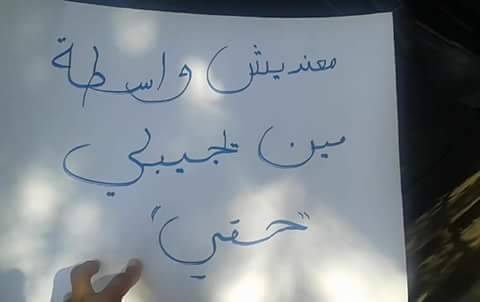 معنديش واسطة
مين تجيبلي
"حقي"